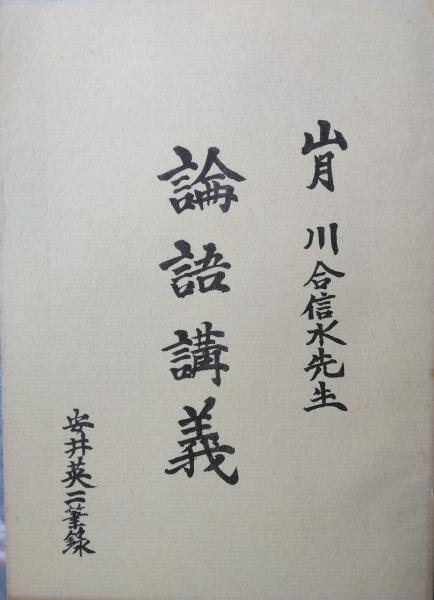 山月 川合信水先生
論語講義
安井英二筆録